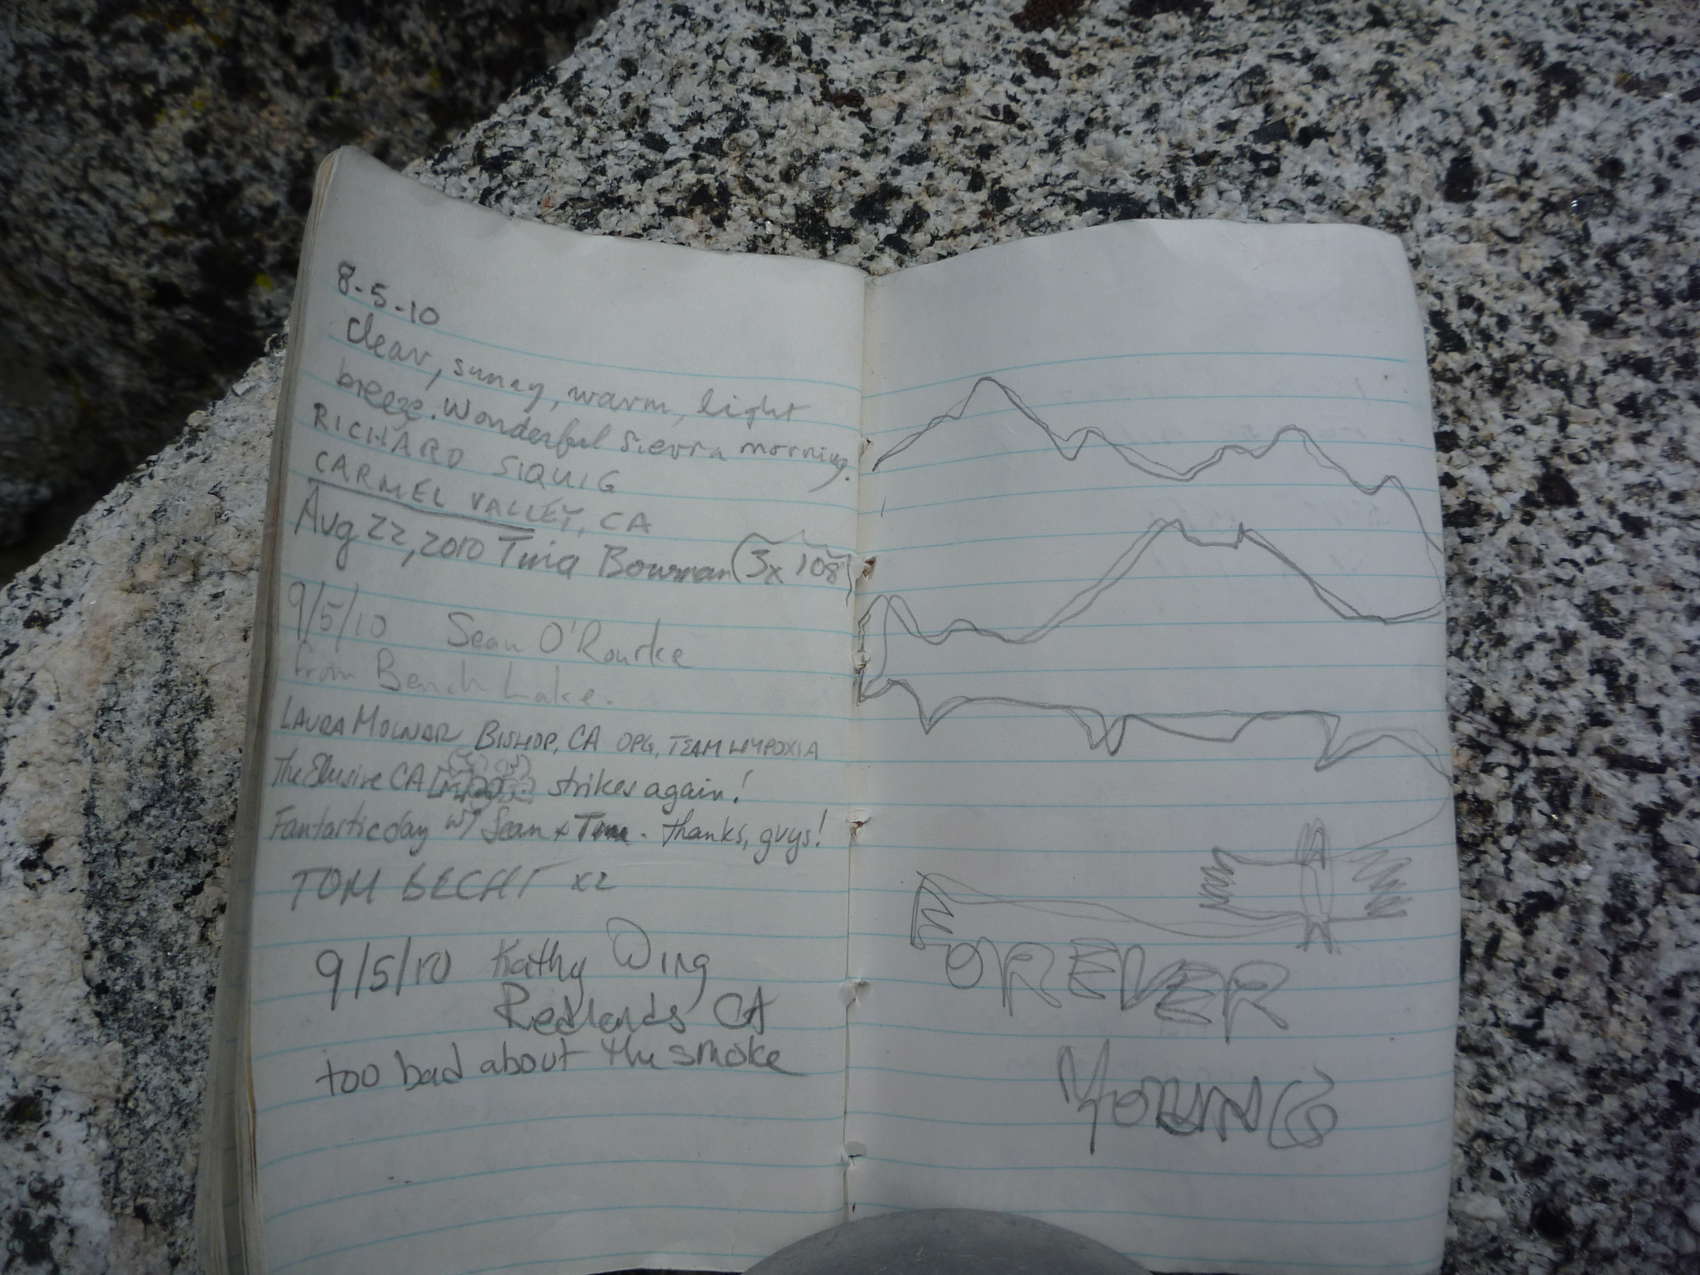 8-5-10
Clear, sunny, warm, light
breeze. Wonderful Sierra morning.
RICHARD SIQUIG
CARMEL VALLEY, CA
Aug 22, 2010 Tina Bowman (3x 108)
9/5/10 Sean O'Rourke
from Bench Lake.
LAURA MOLNAR BISHOP, CA OPG, TEAM HYPOXIA
The Elusive CA strikes again!
Fantastic day w/ Sean + Tom. Thanks, guys!
TOM BECHT x2
9/5/10 Kathy Wing
Redlands CA
too bad about the smoke
FOREVER
YOUNG